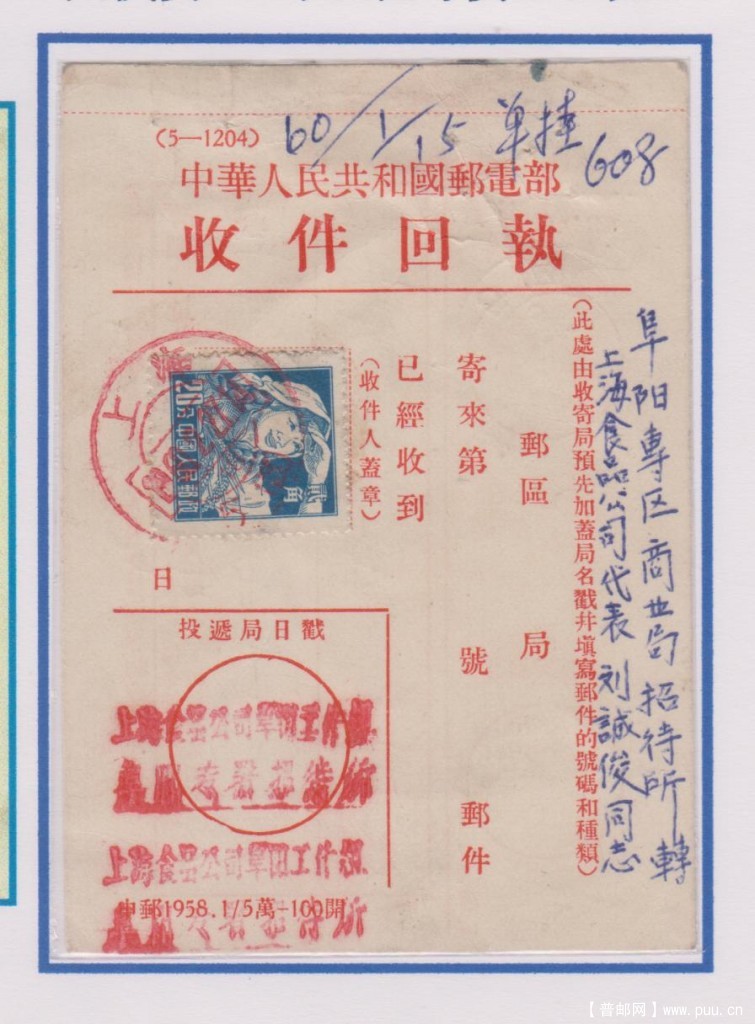 60/1/15 单挂 608
（5—1204）
中華人民共和國郵電部
收件回執
阜阳専区商业局招待所轉
上海食品公司代表刘誠俊同志
（此處由收寄局預先加蓋局名戳幷塡寫郵件的號碼和種類）
郵區 局
寄來第 號 郵件
已經收到
（收件人蓋章）
日
上海
貳角
中國人民郵政
20
投遞局日戳
上海食品公司阜阳工作組
招待所
上海食品公司阜阳工作組
招待所
申郵1958.1/5萬-100開
【普邮网】www.puu.cn